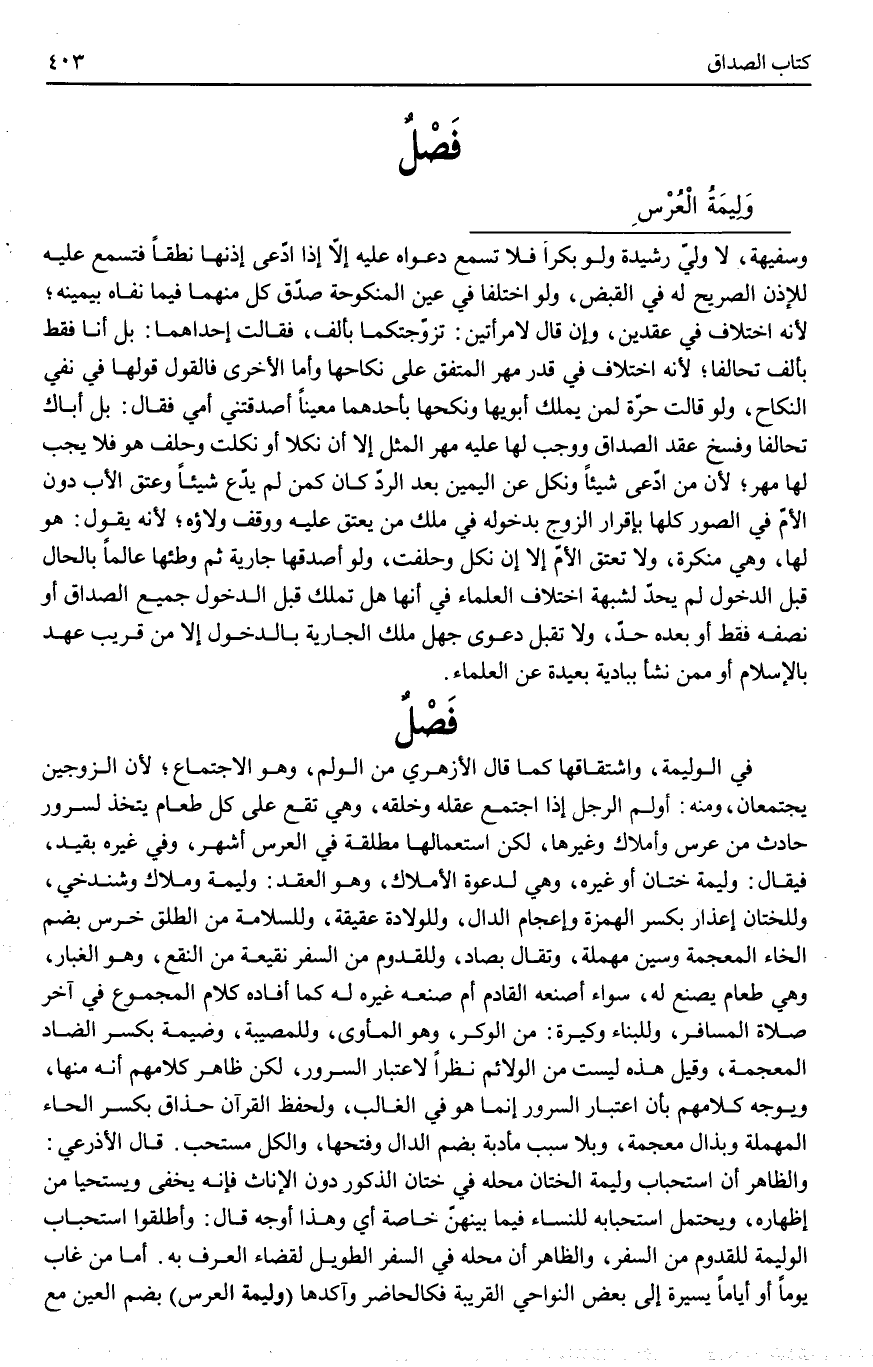 كتاب الصداق
٤٠٣
فَصْلٌ
وَلِيمَةُ الْعُرْسِ
وسفيهة، لا وليّ رشيدة ولو بكراً فلا تسمع دعواه عليه إلّا إذا ادّعى إذنها نطقاً فتسمع عليه
للإذن الصريح له في القبض، ولو اختلفا في عين المنكوحة صدّق كل منهما فيما نفاه بيمينه؛
لأنه اختلاف في عقدين، وإن قال لامرأتين: تزوّجتكما بألف، فقالت إحداهما: بل أنا فقط
بألف تحالفا؛ لأنه اختلاف في قدر مهر المتفق على نكاحها وأما الأخرى فالقول قولها في نفي
النكاح، ولو قالت حرّة لمن يملك أبويها ونكحها بأحدهما معيناً أصدقتني أمي فقال: بل أباك
تحالفا وفسخ عقد الصداق ووجب لها عليه مهر المثل إلا أن نكلا أو نكلت وحلف هو فلا يجب
لها مهر؛ لأن من ادّعى شيئاً ونكل عن اليمين بعد الردّ كان كمن لم يدّع شيئاً وعتق الأب دون
الأمّ في الصور كلها بإقرار الزوج بدخوله في ملك من يعتق عليه ووقف ولاؤه؛ لأنه يقول: هو
لها، وهي منكرة، ولا تعتق الأمّ إلا إن نكل وحلفت، ولو أصدقها جارية ثم وطئها عالماً بالحال
قبل الدخول لم يحدّ لشبهة اختلاف العلماء في أنها هل تملك قبل الدخول جميع الصداق أو
نصفه فقط أو بعده حدّ، ولا تقبل دعوى جهل ملك الجارية بالدخول إلا من قريب عهد
بالإسلام أو ممن نشأ ببادية بعيدة عن العلماء.
فَصْلٌ
في الوليمة، واشتقاقها كما قال الأزهري من الولم، وهو الاجتماع؛ لأن الزوجين
يجتمعان، ومنه: أولم الرجل إذا اجتمع عقله وخلقه، وهي تقع على كل طعام يتخذ لسرور
حادث من عرس وأملاك وغيرها، لكن استعمالها مطلقة في العرس أشهر، وفي غيره بقيد،
فيقال: وليمة ختان أو غيره، وهي لدعوة الأملاك، وهو العقد: وليمة وملاك وشندخي،
وللختان إعذار بكسر الهمزة وإعجام الدال، وللولادة عقيقة، وللسلامة من الطلق خرس بضم
الخاء المعجمة وسين مهملة، وتقال بصاد، وللقدوم من السفر نقيعة من النقع، وهو الغبار،
وهي طعام يصنع له، سواء أصنعه القادم أم صنعه غيره له كما أفاده كلام المجموع في آخر
صلاة المسافر، وللبناء وكيرة: من الوكر، وهو المأوى، وللمصيبة، وضيمة بكسر الضاد
المعجمة، وقيل هذه ليست من الولائم نظراً لاعتبار السرور، لكن ظاهر كلامهم أنه منها،
ويوجه كلامهم بأن اعتبار السرور إنما هو في الغالب، ولحفظ القرآن حذاق بكسر الحاء
المهملة وبذال معجمة، وبلا سبب مأدبة بضم الدال وفتحها، والكل مستحب. قال الأذرعي:
والظاهر أن استحباب وليمة الختان محله في ختان الذكور دون الإناث فإنه يخفى ويستحيا من
إظهاره، ويحتمل استحبابه للنساء فيما بينهنّ خاصة أي وهذا أوجه قال: وأطلقوا استحباب
الوليمة للقدوم من السفر، والظاهر أن محله في السفر الطويل لقضاء العرف به. أما من غاب
يوماً أو أياماً يسيرة إلى بعض النواحي القريبة فكالحاضر وآكدها (وليمة العرس) بضم العين مع